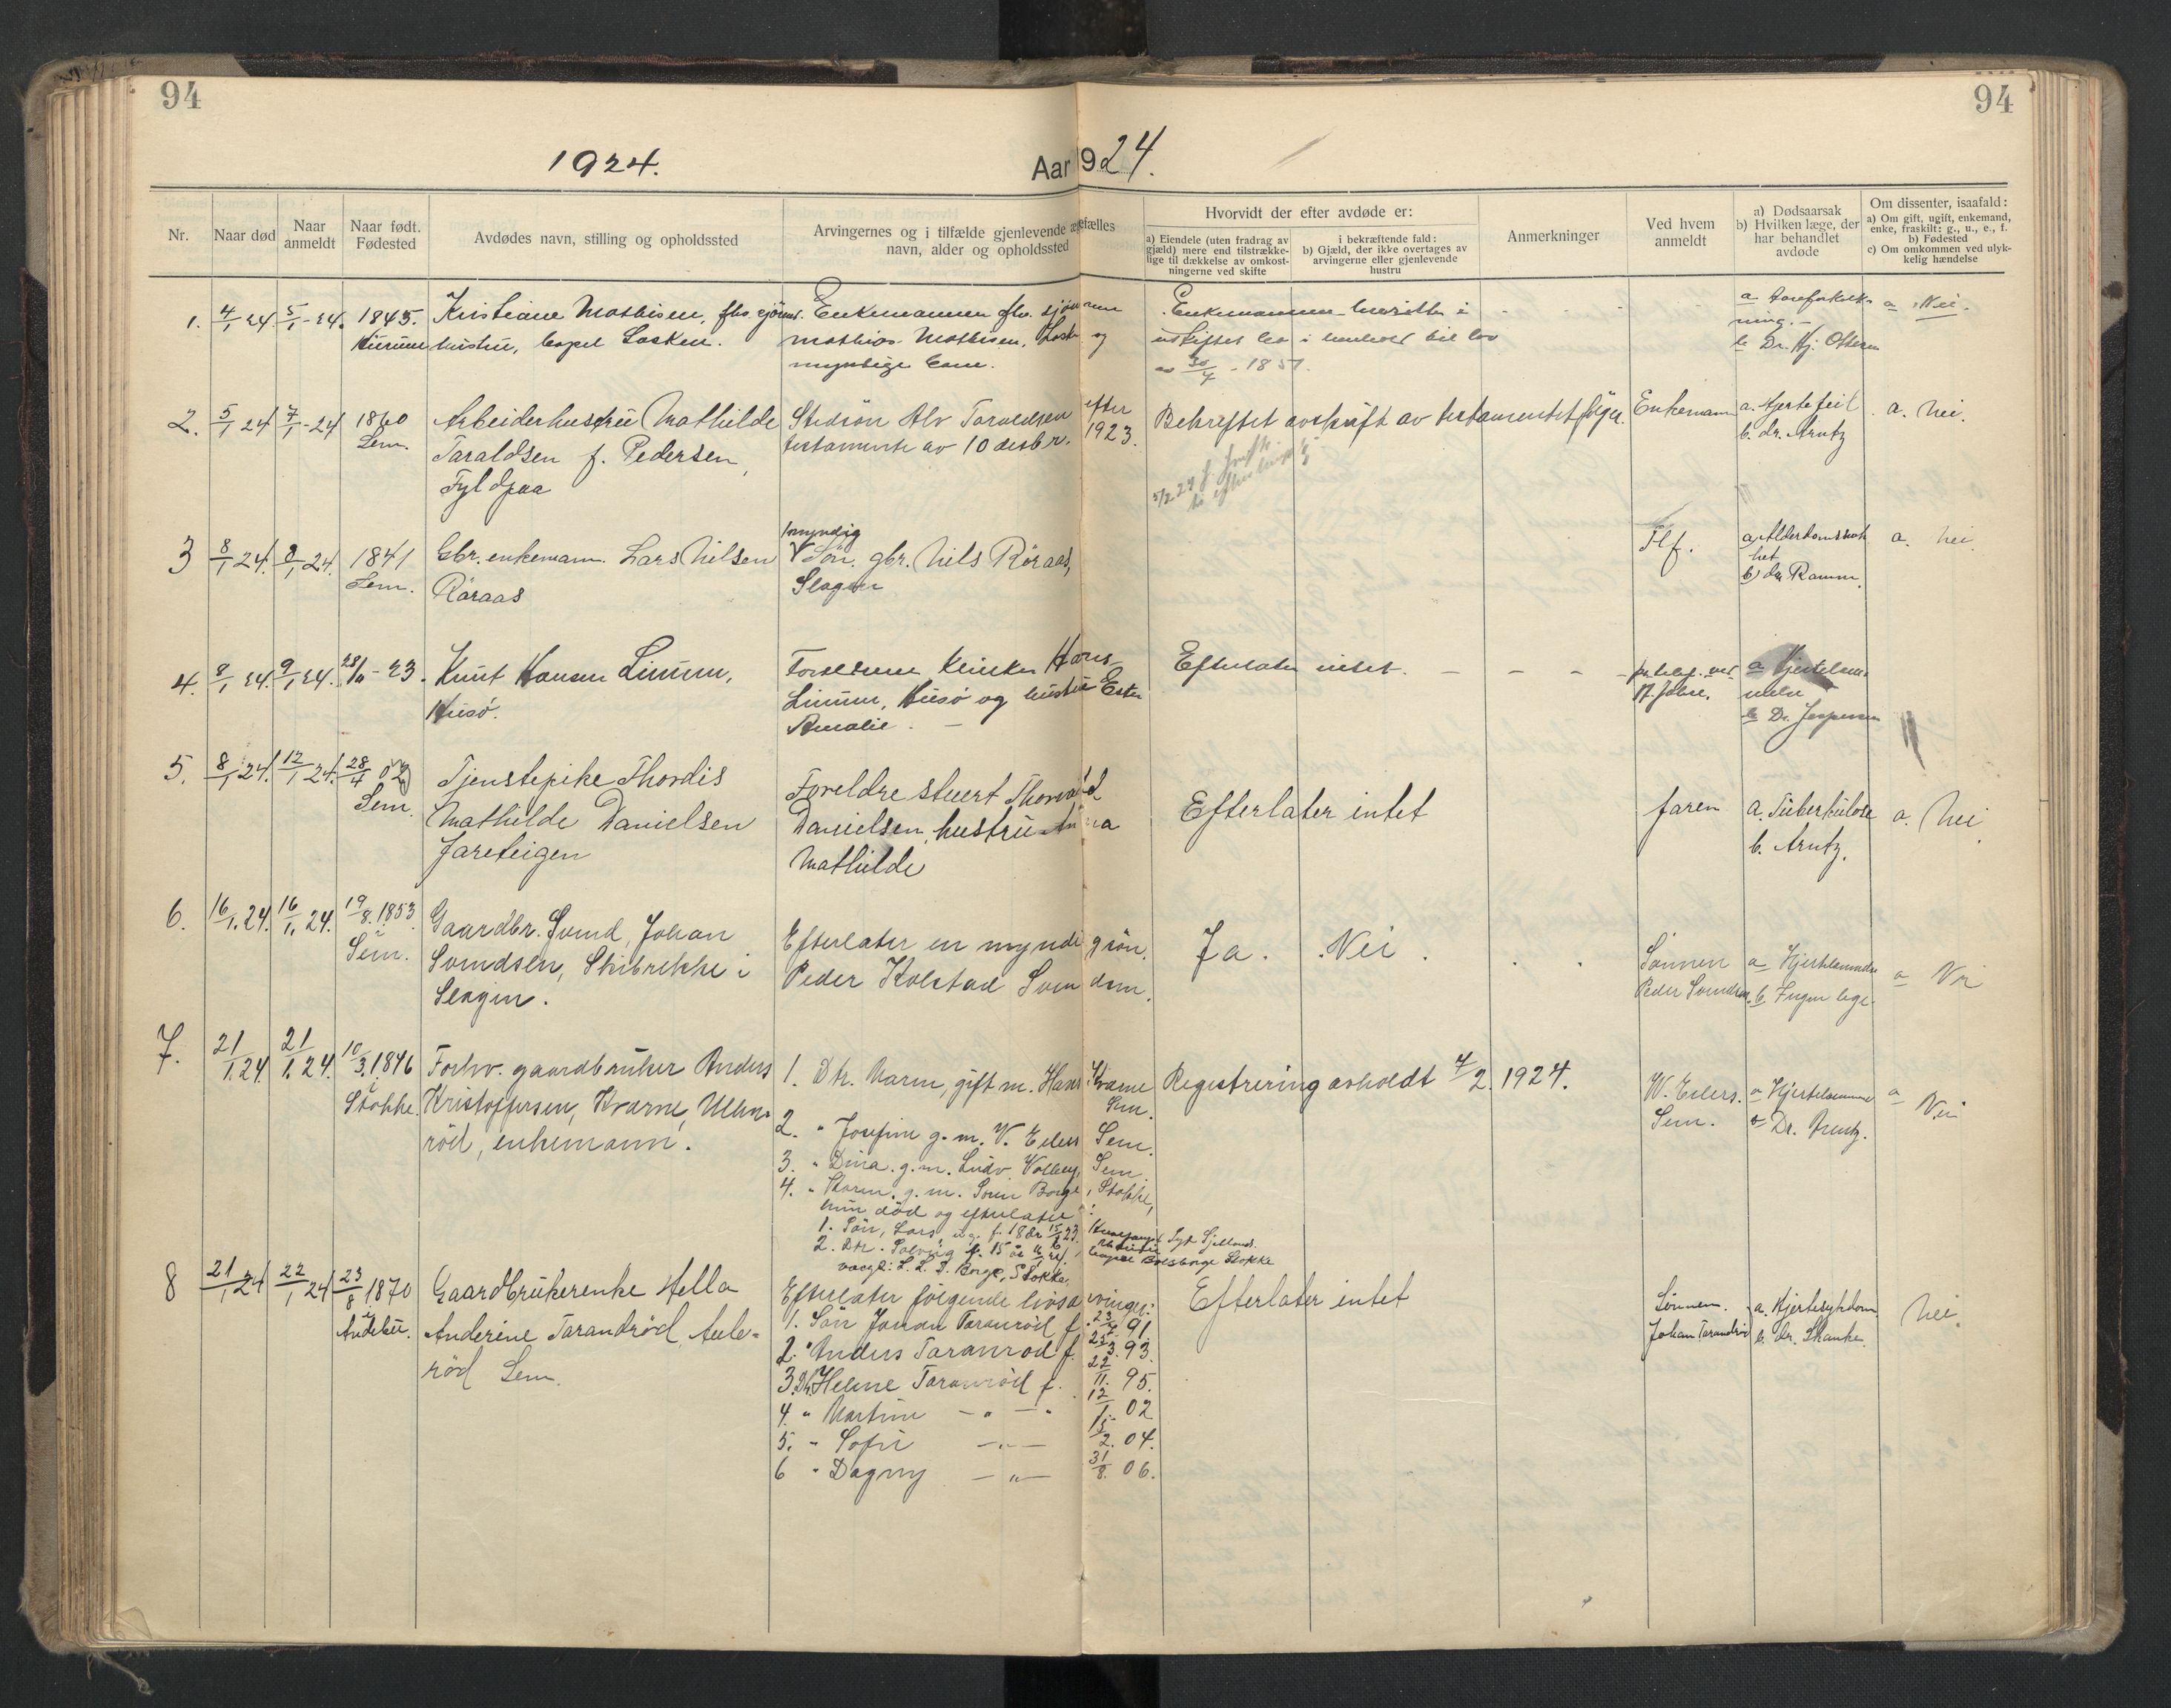 94
94
1924.
Aar 1924.
Nr.
Naar død
Naar anmeldt
Naar født. Fødested
Avdødes navn, stilling og opholdssted
Arvingernes og i tilfælde gjenlevende ægtefælles
navn, alder og opholdssted
Hvorvidt der efter avdøde er:
a) Eiendele (uten fradrag av
gjæld) mere end tilstrække-
lige til dækkelse av omkost-
ningerne ved skifte
i bekræftende fald:
b) Gjæld, der ikke overtages av
arvingerne eller gjenlevende
hustru
Anmerkninger
Ved hvem
anmeldt
a) Dødsaarsak
b) Hvilken læge, der
har behandlet
avdøde
Om dissenter, isaafald:
a) Om gift, ugift, enkemand,
enke, fraskilt: g., u., e., f.
b) Fødested
c) Om omkommen ved ulyk-
kelig hændelse
1. 4/1 24 5/1-24. 1845. Kristiane Mathisen, fhv. sjøm. Enkemannen fhv. sjøm
hustru, Mathias Mathisen, og
myndige barn.
Enkemannen hensitter i
uskiftet bo i henhold til lov
av 30/4-1851.
b Dr. Hj.
a Nei.
2. 5/1 24 7/1-24 1860 Arbeiderhustru Mathilde Stedsøn Alv Taraldsen efter
Sem. Taraldsen f. Pedersen, testamente av 10 desbr. 1923.
Fyldpaa
Bekreftet avskrift av testamentet følger. Enkemann a. Hjertefeil a. nei.
b. dr. Arntz
3 8/1 24. 8/1 24. 1841 Gbr. enkemann Lars Nilsen 1 myndig
Sem. Røraas Søn. gbr. Nils Røraas,
Slagen
Tlf. a. Alderdomssvak
het a. nei.
b) dr. Ramm.
4. 8/1 24. 9/1 24. -23. Knut Hansen Linnum, Foreldrene Hans
Husø. Linnum, Husø og hustru Ester
Amalie.
Efterlater intet.
b Dr. Jespersen
5. 8/1 24. 12/1 24. 28/4 02 Tjenestepike Thordis Foreldre stuert Thorvald
Sem. Mathilde Danielsen Danielsen, hustru
Jareteigen Mathilde
Efterlater intet faren a. Tuberkulose a. nei.
b. Arntz.
6. 16/1. 24. 16/1. 24. 19/8. 1853. Gaardbr. Svend, Johan Efterlater en myndig søn.
i Sem. Svendsen, Skibrekke i Peder Kolstad Svendsen.
Slagen.
Ja. Nei. Sønnen
Peder Svendsen. b. Ingen læge. a Nei
7. 21/1.24. 21/1.24. 10/3.1846 Forhv. gaardbruker Anders 1. Dtr. Karen, gift m. Hans Kvarne
i Stokke. Kristoffersen, Kvarne, Sem.
rød, enkemann. 2. " Josefine g. m. W. Eilers Sem.
3. " Dina. g. m. Ludv. Sem.
4. " Karen. g. m. Søren Borge, Stokke,
hun død og efterlater:
1. Søn, Lars, f. 18 år
2. Dtr. Solveig f. 15 år
værge: L. L. D. Borge, Stokke.
Registrering avholdt 4/2. 1924. W. Eilers.
Sem. b Dr. Arntz. a Nei
8 21/1 24 22/1 24 23/8 1870 Gaardbrukerenke Hella Efterlater følgende livsarvinger:
i Andebu. Anderine Tarandrød, Aule-
rød Sem.
1. Søn Johan Taranrød f. 23/4 91
2. " Anders Taranrød f. 25/3. 93.
3. Dtr. Helene Taranrød f. 22/11. 95.
4. " Martine — " — " 12/1. 02
5. " Sofie — " — 15/2. 04.
6 " Dagny — " — 31/8. 06.
Efterlater intet Sønnen. a. Hjertesykdom nei.
Johan Tarandrød b. dr. Skanke